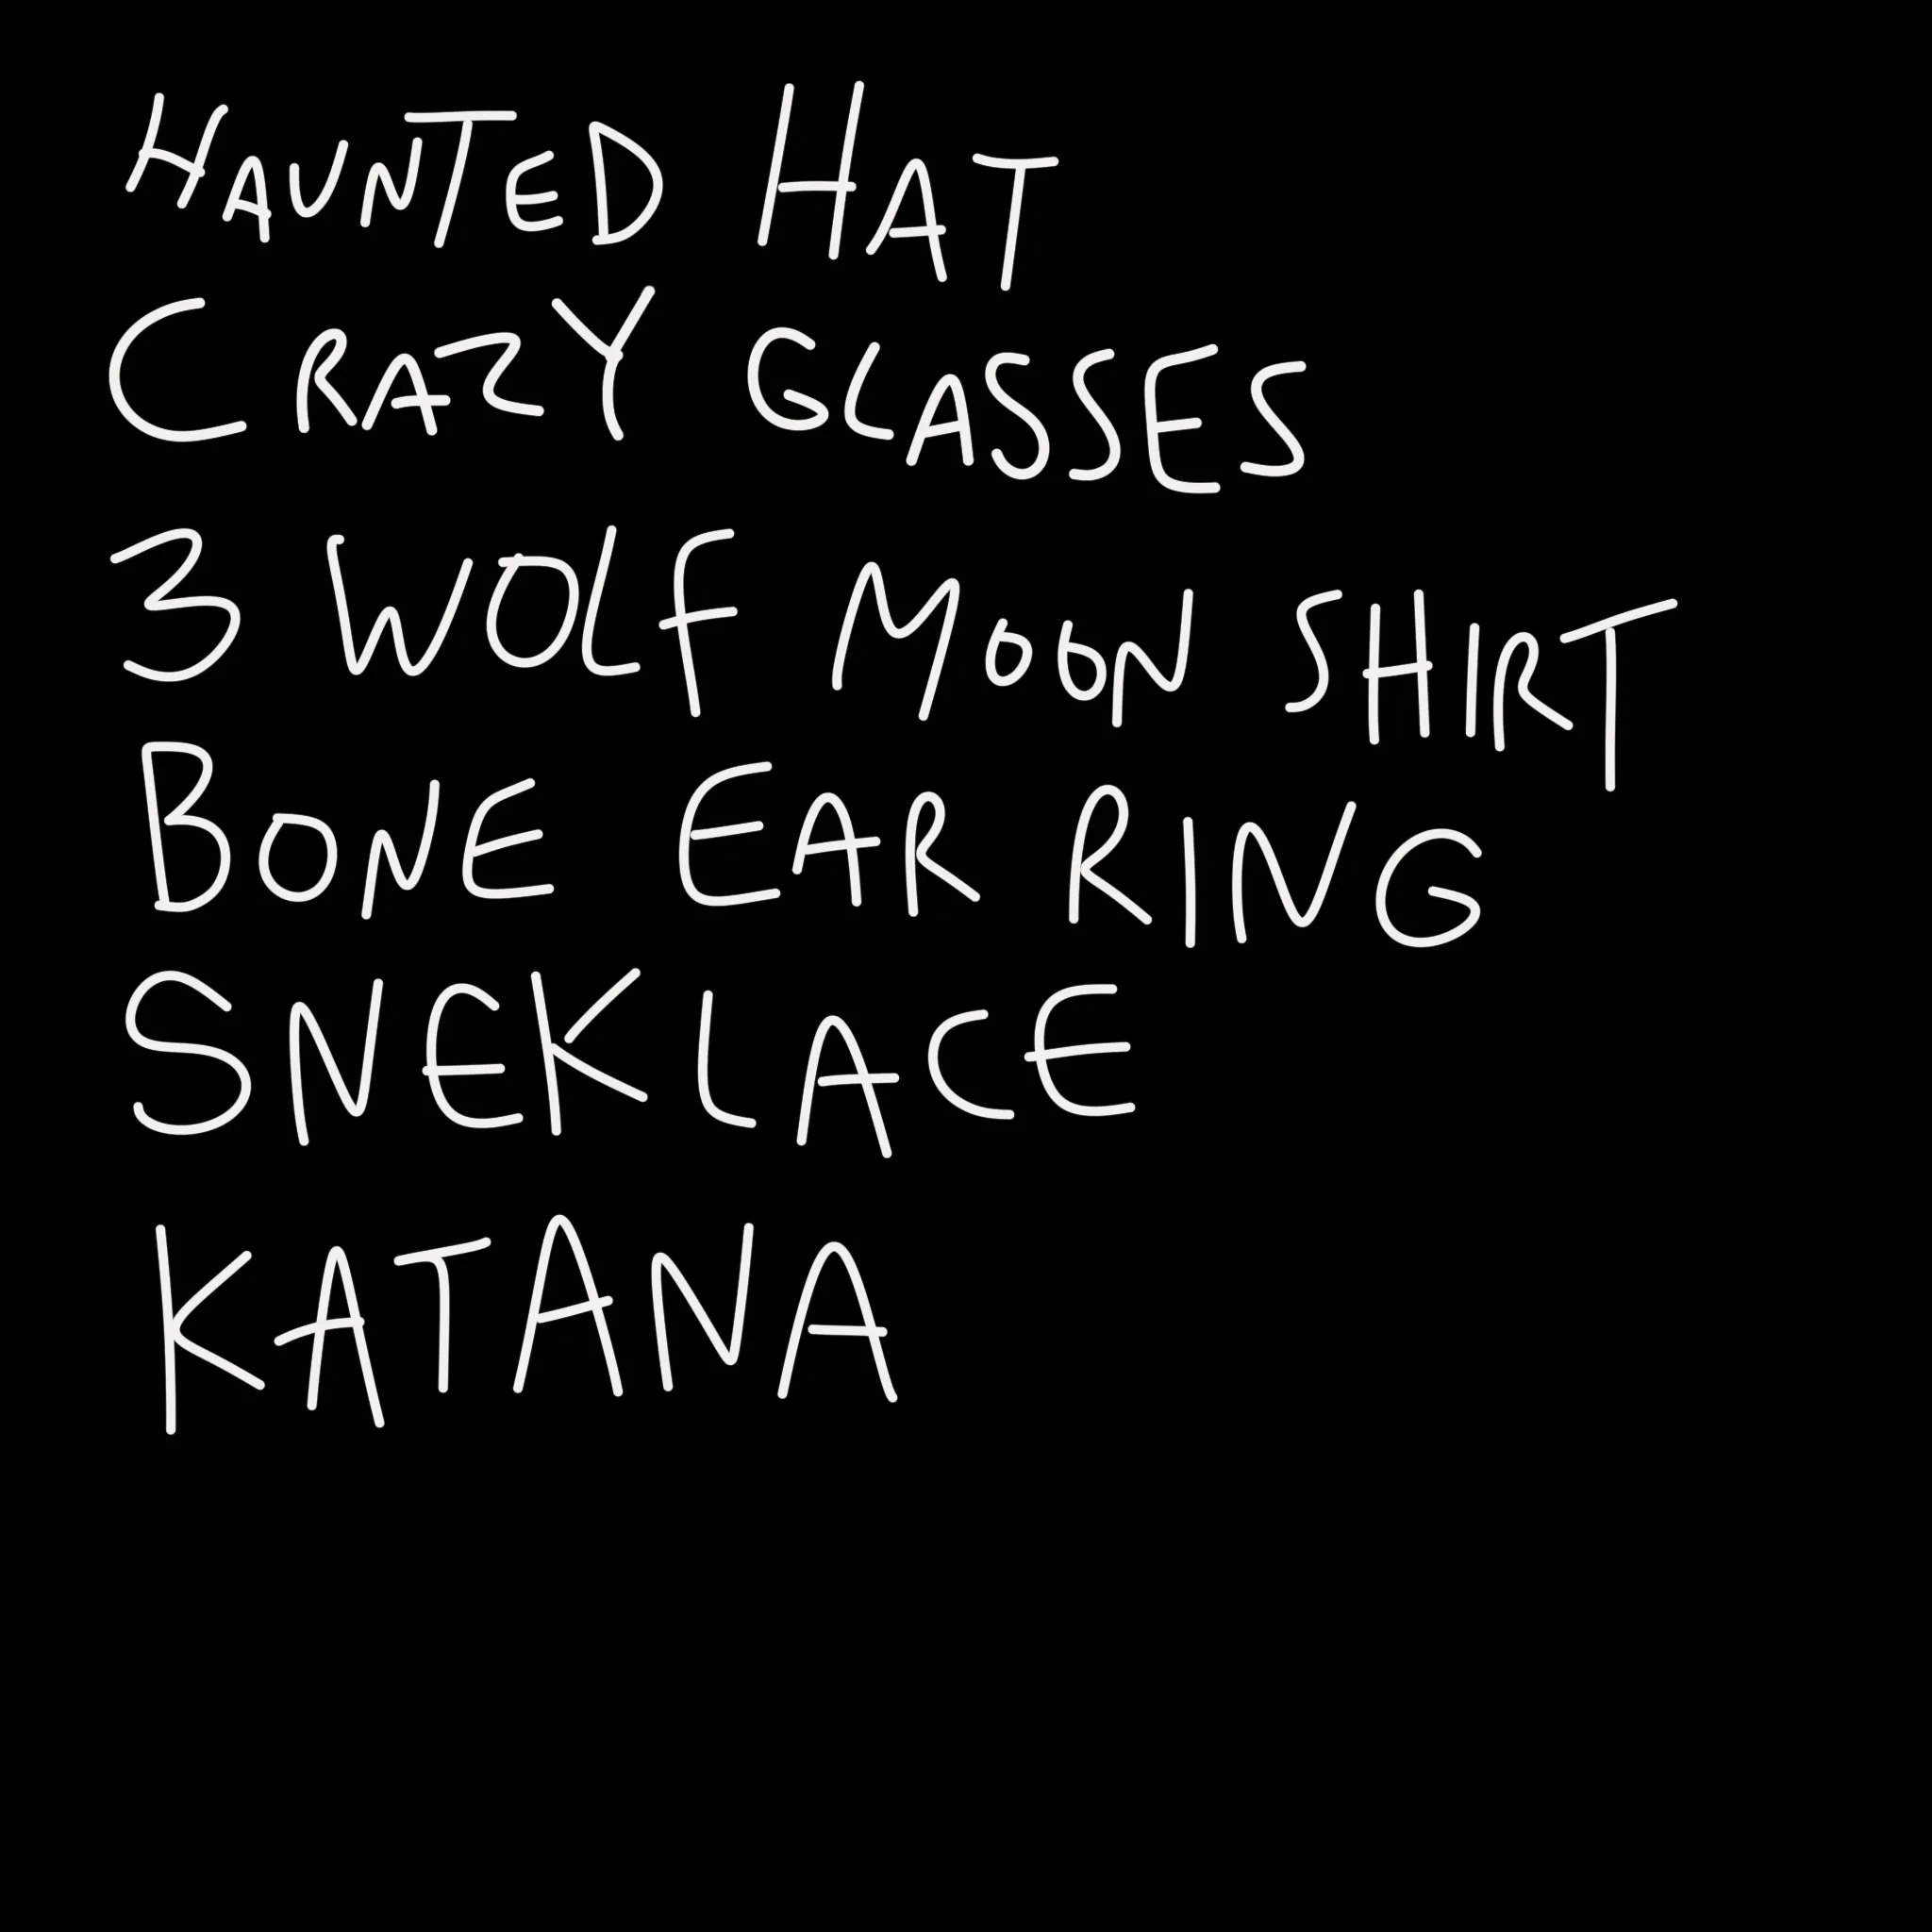 HAUNTED HAT
CRAZY GLASSES
3 WOLF MOON SHIRT
BONE EAR RING
SNEKLACE
KATANA